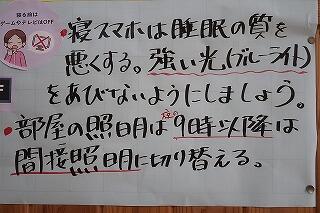 寝る前は
ゲームやテレビはOFF
・寝スマホは睡眠の質を
悪くする。強い光(ブルーライト)
をあびないようにしましょう。
・部屋の照明は夜9時以降は
間接照明に切り替える。